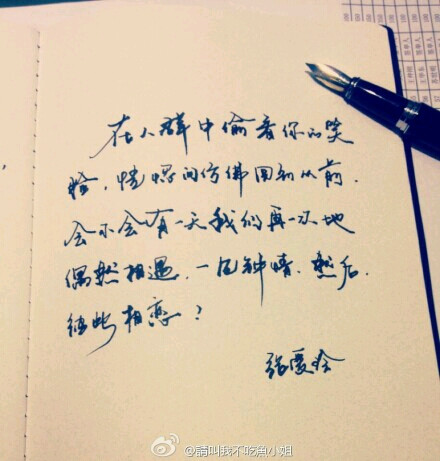 在人群中偷看你的笑
脸，恍惚间仿佛回到从前.
会不会有一天我们再一次地
偶然相遇.一见钟情.然后.
彼此相恋？
张爱玲
@請叫我不吃魚小姐